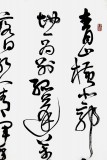 青山横北郭
地一为别孤蓬万
落日故人情挥